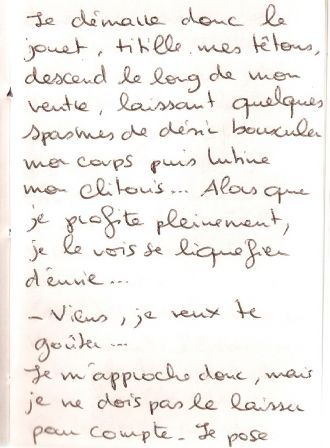 Je démarre donc le
jouet, titille mes têtons,
descend le long de mon
ventre, laissant quelques
spasmes de désir bousculer
mon corps puis lutine
mon clitoris... Alors que
je profite pleinement,
je le vois se liquefier
d'envie...
- Viens, je veux te
goûter...
Je m'approche donc, mais
je ne dois pas le laisser
pour compte. Je pose